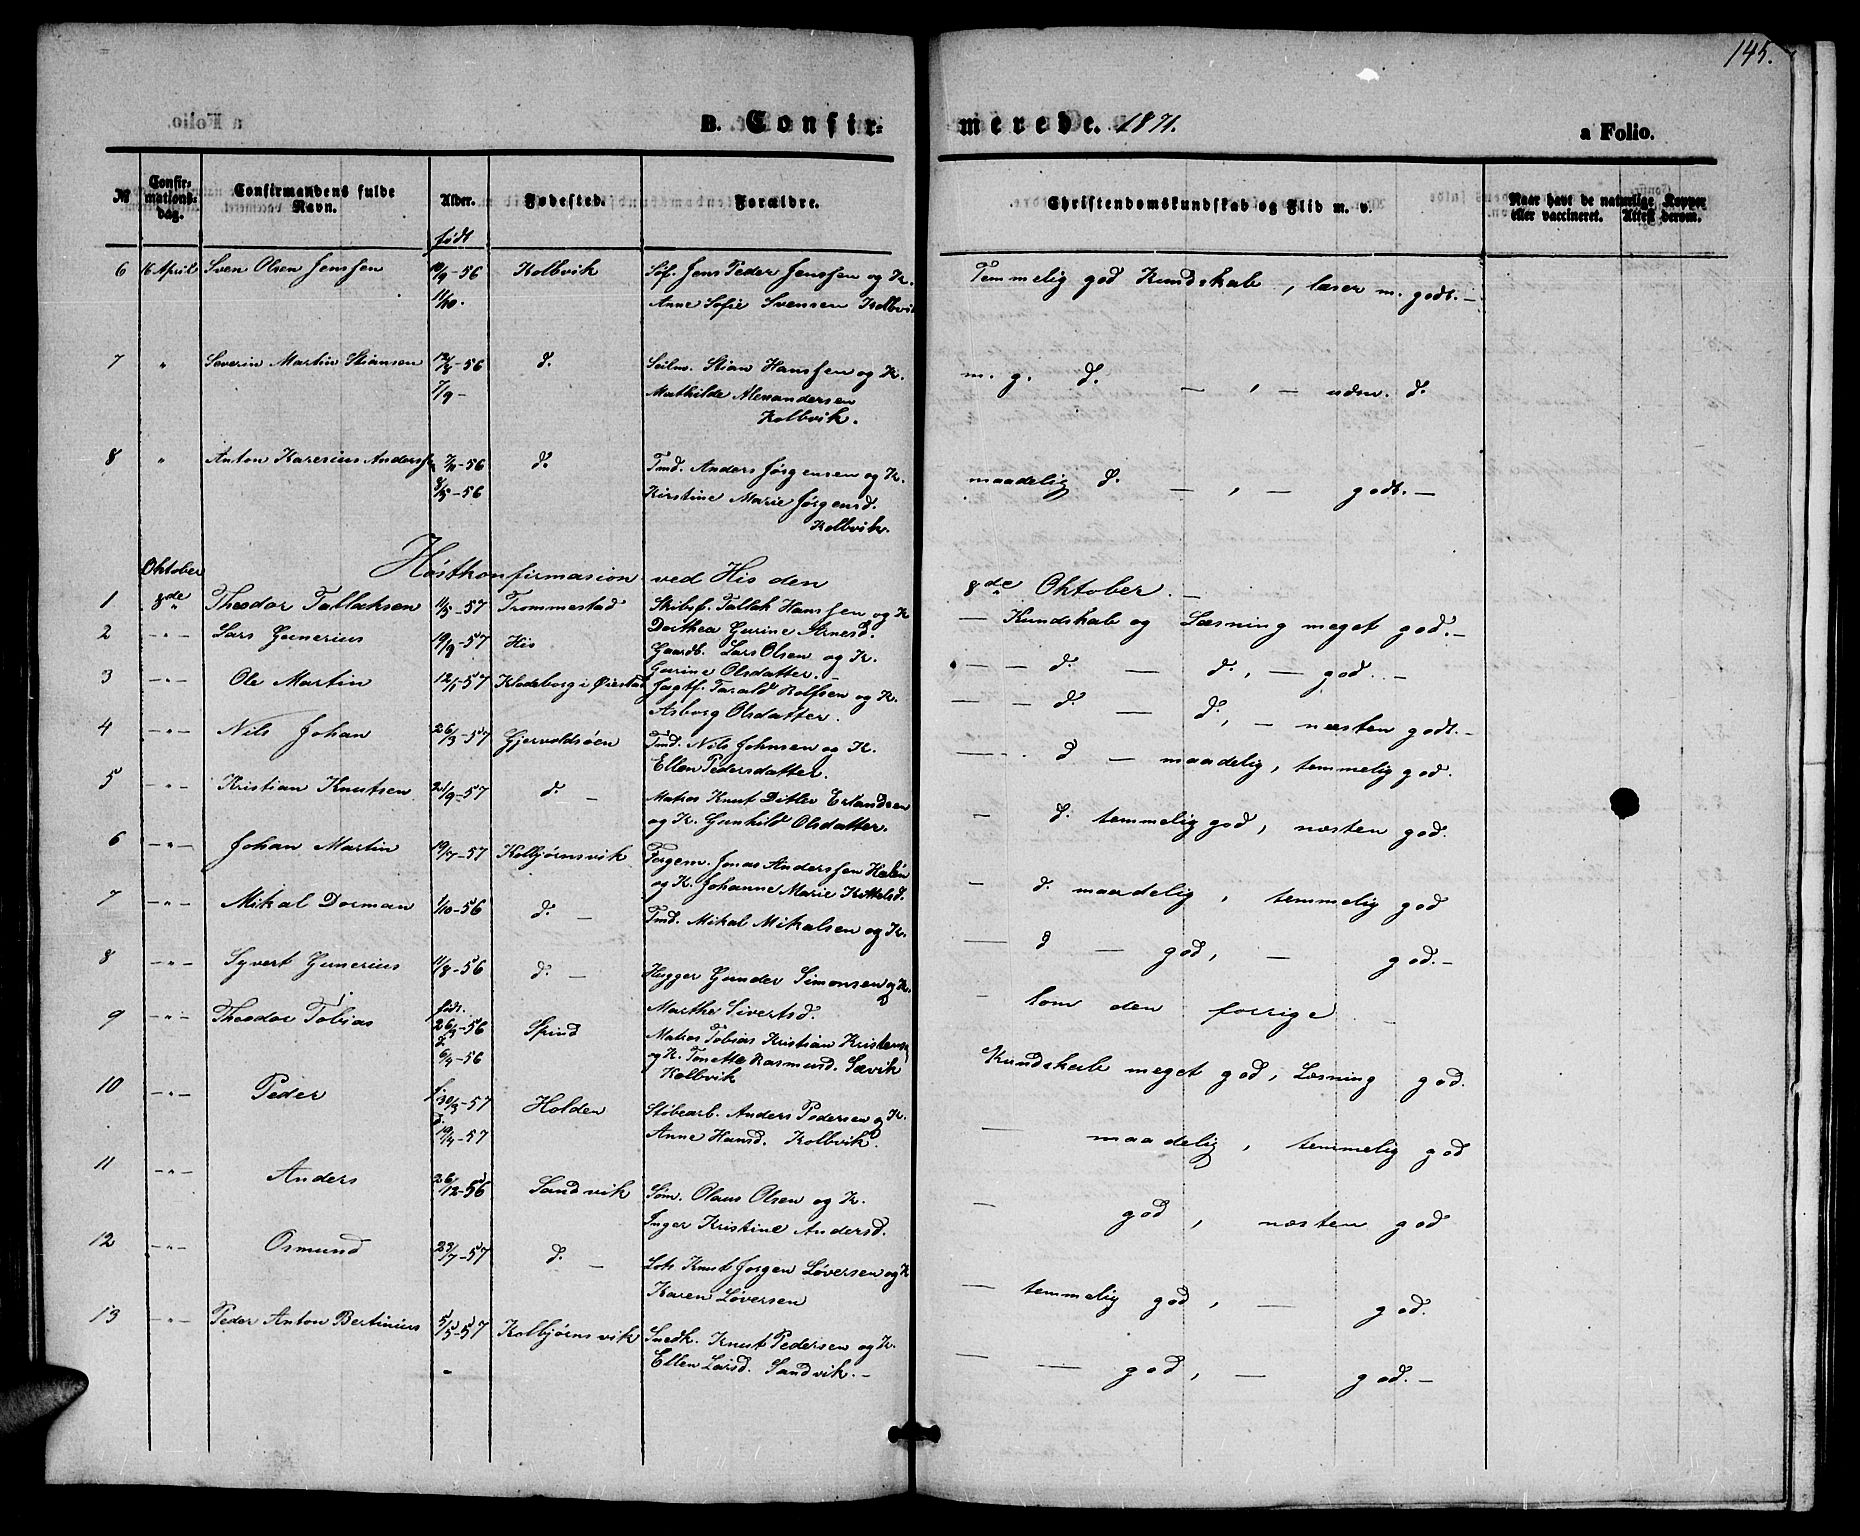 145.
B. Confirmerede. 1871. a Folio.
№ Confirmationsdag. Confirmandens fulde Navn. Alder. Fødested. Forældre. Christendomskundskab og Flid m. v. Naar havt de naturlige Kopper eller vaccineret. Attest derom.
født
6 16 April Sven Olsen Jenssen 19/9-56 Kolbvik Søf. Jens Peder Jenssen og K. Temmelig god Kundskab, læser m. godt.-
11/10. Anne Sofie Svensen Kolbvik
7 " Severin Martin Stiansen 12/7-56 d. Seilm. Stian Hanssen og K. m. g. d. - , - udm. d.
7/9- Mathilde Alexandersen
Kolbvik.
8 " Anton Karenius Anderss -56 d. Tmd. Anders Jørgensen og K. maadelig d. - , - godt.-
8/5-56 Kirstine Marie Jørgensd.
Kolbvik.
Oktober Høstkonfirmasion ved His den 8de Oktober.-
1 8de Theodor Tallaksen 11/5-57 Trommestad Skibsf. Tallak Hanssen og K - Kundskab og Læsning meget god.-
Dorthea Gurine Arnesd.
2 -"- Lars Gunerius 19/9-57 His Gaardb. Lars Olsen og K. - - d. - d., - god.-
Gurine Olsdatter.-
3 -"- Ole Martin 12/1-57 Klodeborg i Øiestad Jagtf. Tarald Rolfsen og K. - - d. - d., - næsten godt.-
Asborg Olsdatter.
4 -"- Nils Johan 26/3-57 Gjervoldsøen Tmd. Nils Johnsen og K. - - d - maadelig, temmelig god.
Ellen Pedersdatter.
5 -"- Kristian Knutsen 21/9-57 d. - Matros Knut Ditlev Erlandsen - d. temmelig god, næsten god.
og K. Gunhild Olsdatter.
6 -"- Johan Martin 19/7-57 Kolbjørnsvik Fergem. Jonas Anderssen Holen - d. maadelig, temmelig god
og K. Johanne Marie Kittelsd.
7 -"- Mikal Dorman 1/10-56 d. - Tmd. Mikal Mikalsen og K. - d - god, - god.-
8 -"- Syvert Gunerius 11/8-56 d. - Hugger Gunder Simonsen og K. - Som den forrige -
født. Marthe Sivertsd.
9 -"- Theodor Tobias 26/3-56 Spind Matros Tobias Kristian Kristens. Kundskab meget god, Læsning god.
d. 6/4-56 og K. Tonette Rasmusd. Sævik
Kolbvik
10 -"- Peder f. 30/3-57 Holden Støbearb. Anders Pedersen og K. - maadelig, temmelig god
d. 19/4-57 Anne Hansd. Kolbvik.
11 -"- Anders 26/12-56 Sandvik Søm. Olaus Olsen og K. - god, næsten god
Inger Kristine Andersd.
12 -"- Osmund 23/7-57 d. - Lots Knut Jørgen Løversen og K - temmelig god, - god.
Karen Løversen
13 -"- Peder Anton Bertinius 5/5-57 Kolbjørnsvik Snedk. Knut Pedersen og K. - - god, - god.-
- Ellen Larsd. Sandvik.-